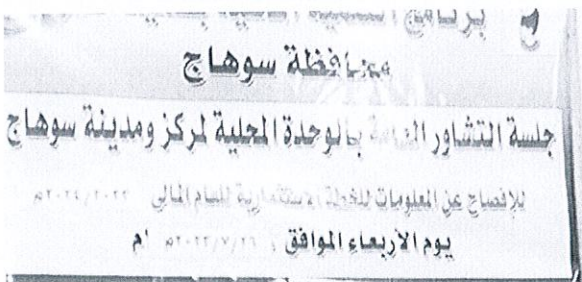 برنامج التنمية المحلية بصعيد
محافظة سوهاج
جلسة التشاور العامة بالوحدة المحلية لمركز ومدينة سوهاج
للإفصاح عن المعلومات للخطة الاستثمارية للعام المالي ٢٠٢٤/٢٠٢٣م
يوم الأربعاء الموافق ٢٠٢٣/٧/٢٦م